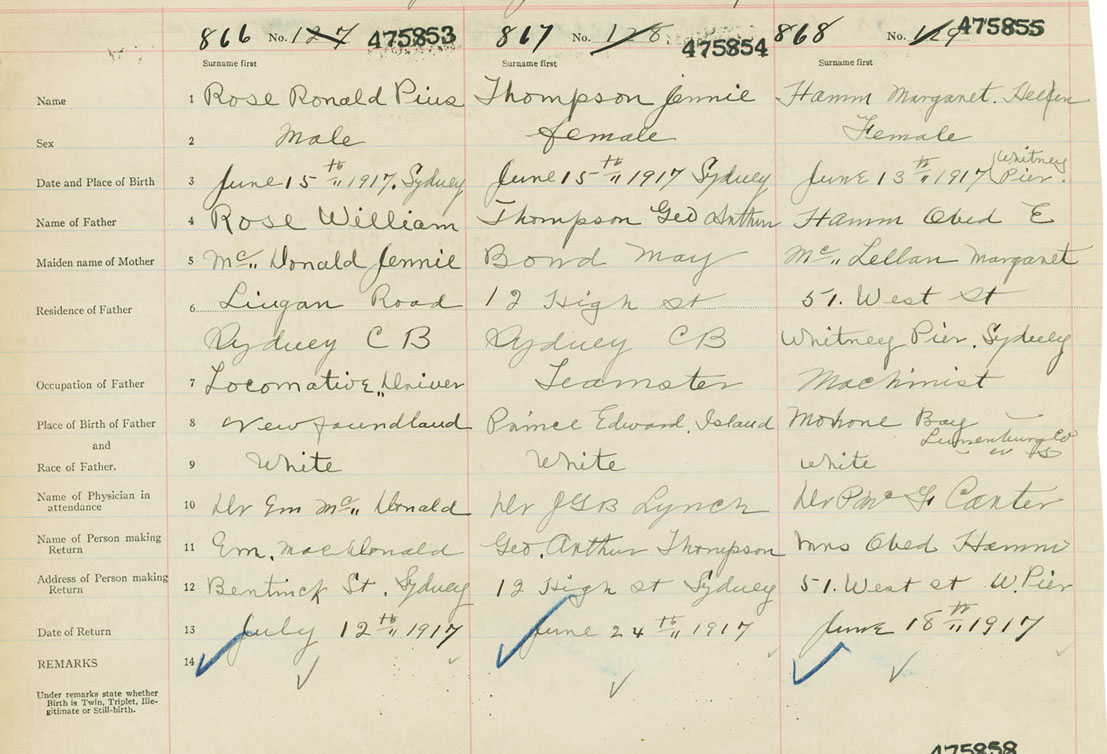 866 No. 127 475853 867 No. 128 475854 868 No. 129 475855
Surname first Surname first Surname first
Name 1 Rose Ronald Pius Thompson Jennie Hamm Margaret. Hellen
Sex 2 Male female Female
Whitney
Date and Place of Birth 3 June 15th 1917. Sydney June 15th 1917 Sydney June 13th 1917 Pier.
Name of Father 4 Rose William Thompson Geo Arthur Hamm Obed E
Maiden name of Mother 5 Mc Donald Jennie Bond May Mc Lellan Margaret
Residence of Father 6 Lingan Road 12 High st 51. West St
Sydney C B Sydney CB Whitney Pier. Sydney
Occupation of Father 7 Locomative Driver Teamster Machinist
Place of Birth of Father 8 Newfoundland Prince Edward. Island Mohone Bay
and Lunenburg Co
Race of Father. 9 White White white
Name of Physician in
attendance 10 Dr Em Mc Donald Dr JGB Lynch Dr Carter
Name of Person making
Return 11 Em. MacDonald Geo. Arthur Thompson Mrs Obed Hamm
Address of Person making
Return 12 Bentinck St. Sydney 12 High st Sydney 51. West st W. Pier
Date of Return 13 July 12th 1917 June 24th 1917 June 18th 1917
REMARKS 14
Under remarks state whether
Birth is Twin, Triplet, Ille-
gitimate or Still-birth.
475858